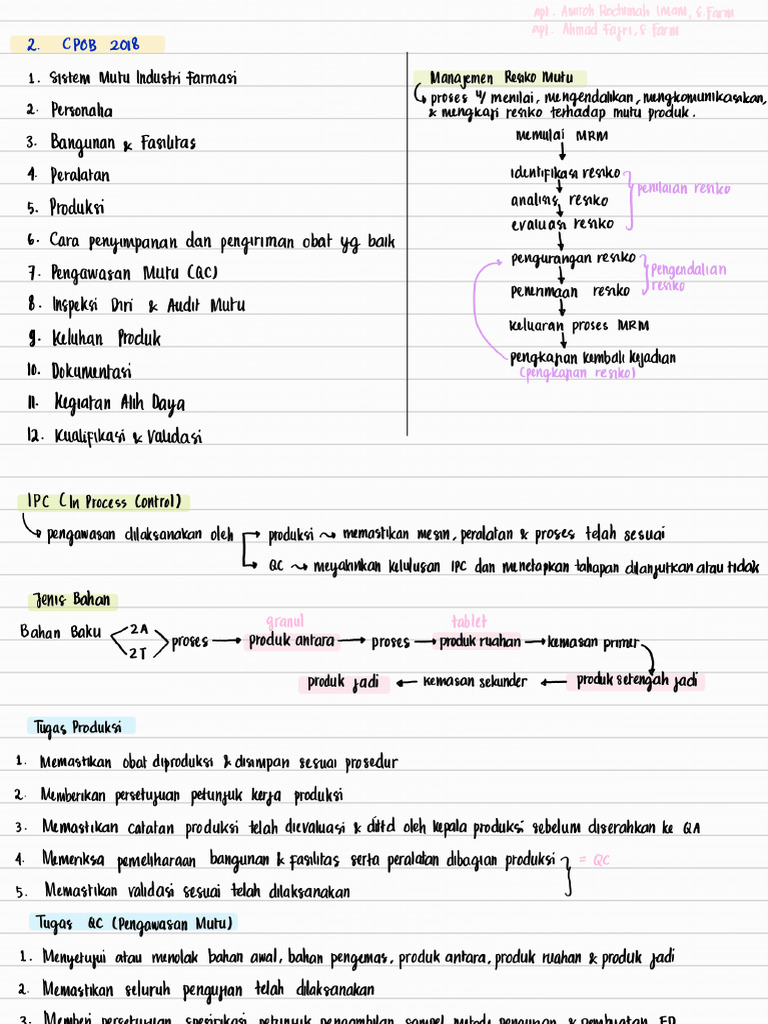 apt. Ahmad Fajri, S.Farm
2. CPOB 2018
1. Sistem Mutu Industri Farmasi
2. Personalia
3. Bangunan & Fasilitas
4. Peralatan
5. Produksi
6. Cara penyimpanan dan pengiriman obat yg baik
7. Pengawasan Mutu (QC)
8. Inspeksi Diri & Audit Mutu
9. Keluhan Produk
10. Dokumentasi
11. Kegiatan Alih Daya
12. Kualifikasi & Validasi
Manajemen Resiko Mutu
proses u/ menilai, mengendalikan, mengkomunikasikan,
& mengkaji resiko terhadap mutu produk.
Memulai MRM
identifikasi resiko
analisis resiko
evaluasi resiko
penilaian resiko
pengurangan resiko
penerimaan resiko
Pengendalian
resiko
keluaran proses MRM
pengkajian kembali kejadian
(pengkajian resiko)
IPC (In Process Control)
pengawasan dilaksanakan oleh → produksi ⤳ memastikan mesin, peralatan & proses telah sesuai
→ QC ⤳ meyakinkan kelulusan IPC dan menetapkan tahapan dilanjutkan atau tidak
Jenis Bahan
granul tablet
Bahan Baku < 2A 2T > proses → produk antara → proses → produk ruahan → kemasan primer
produk jadi ← kemasan sekunder ← produk setengah jadi
Tugas Produksi
1. Memastikan obat diproduksi & disimpan sesuai prosedur
2. Memberikan persetujuan petunjuk kerja produksi
3. Memastikan catatan produksi telah dievaluasi & dittd oleh kepala produksi sebelum diserahkan ke QA
4. Memeriksa pemeliharaan bangunan & fasilitas serta peralatan dibagian produksi = QC
5. Memastikan validasi sesuai telah dilaksanakan
Tugas QC (Pengawasan Mutu)
1. Menyetujui atau menolak bahan awal, bahan pengemas, produk antara, produk ruahan & produk jadi
2. Memastikan seluruh pengujian telah dilaksanakan
3. Memberi persetujuan spesifikasi petunjuk pengambilan sampel metode pengujian & pembuatan